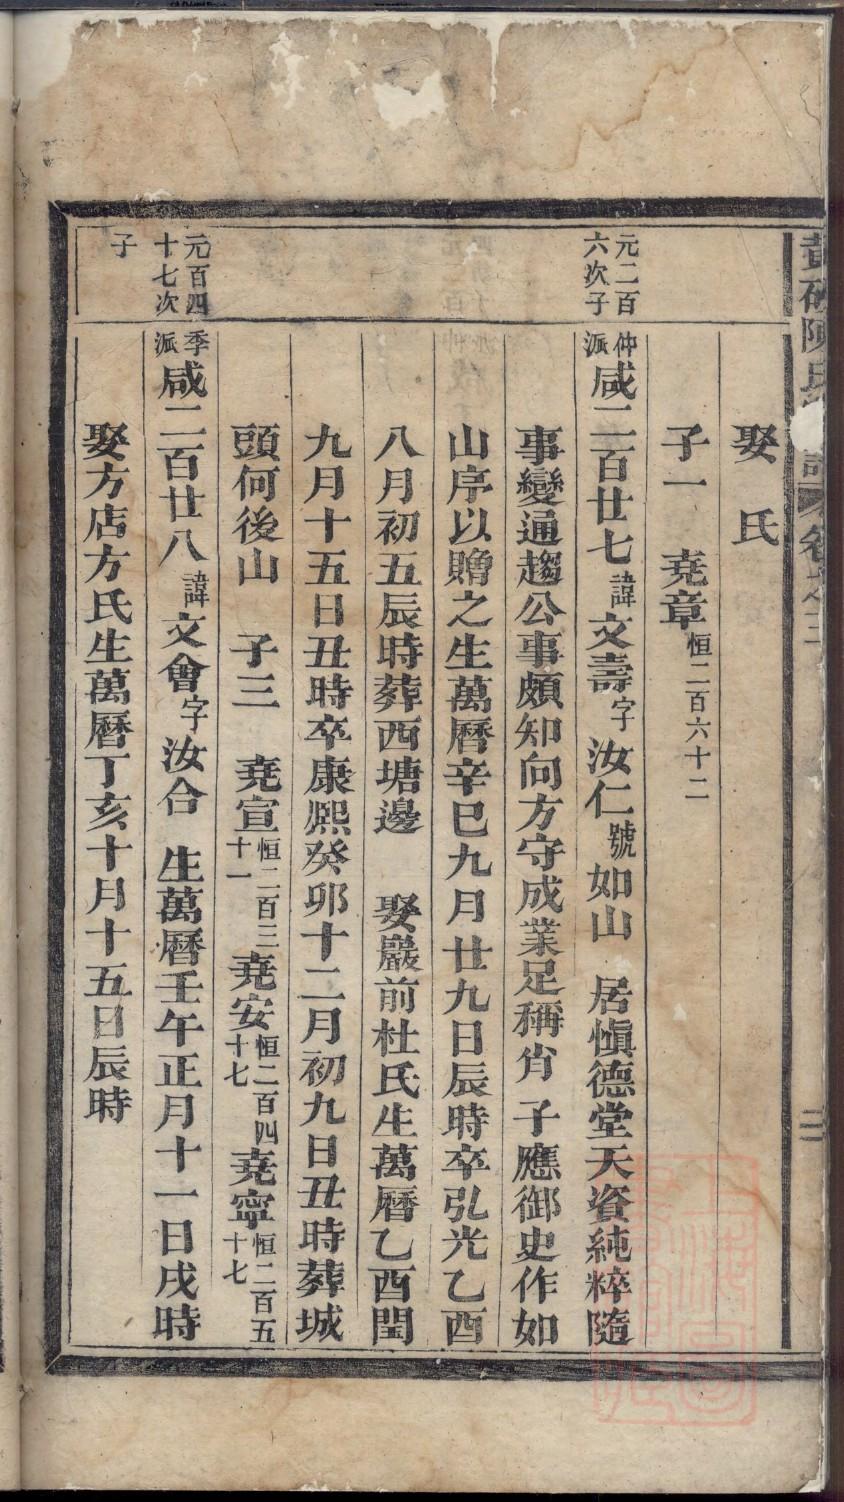 陳氏
卷之三
二
娶　氏
子一　堯章恒二百六十二
元二百六次子
仲派咸二百廿七諱文壽字汝仁號如山　居愼德堂天資純粹隨
事變通趨公事頗知向方守成業足稱肖　子應御史作如
山序以贈之生萬曆辛巳九月廿九日辰時卒弘光乙酉
八月初五辰時葬西塘邊　娶巖前杜氏生萬曆乙酉閏
九月十五日丑時卒康熙癸卯十二月初九日丑時葬城
頭何後山　子三　堯宣恒二百三十一堯安恒二百四十七堯寧恒二百五十七
元百四十七次子
季派咸二百廿八諱文會字汝合　生萬曆壬午正月十一日戌時
娶方店方氏生萬曆丁亥十月十五日辰時